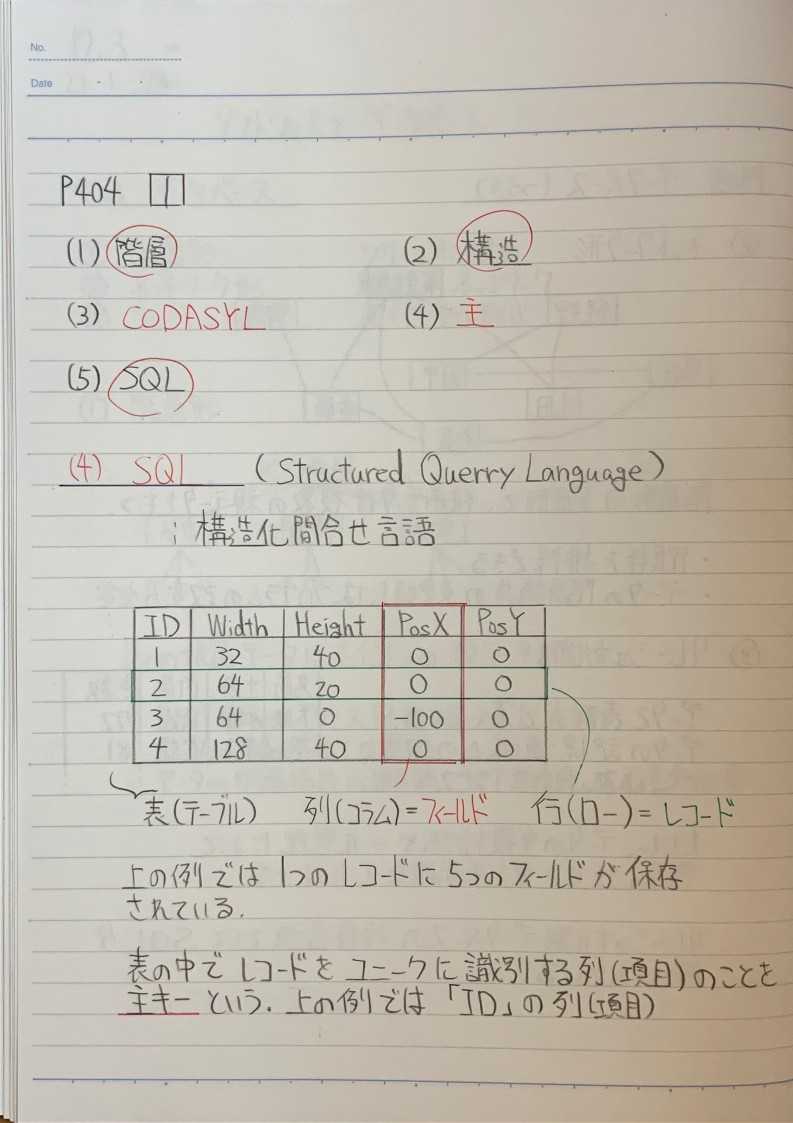 No.
Date
P404 1
(1) 階層 (2) 構造
(3) CODASYL (4) 主
(5) SQL
(4) SQL (Structured Querry Language)
; 構造化問合せ言語
ID Width Height PosX PosY
1 32 40 0 0
2 64 20 0 0
3 64 0 -100 0
4 128 40 0 0
表(テーブル) 列(コラム)=フィールド 行(ロー)=レコード
上の例では 1つのレコードに5つのフィールドが保存
されている.
表の中でレコードをユニークに識別する列(項目)のことを
主キーという. 上の例では「ID」の列(項目)